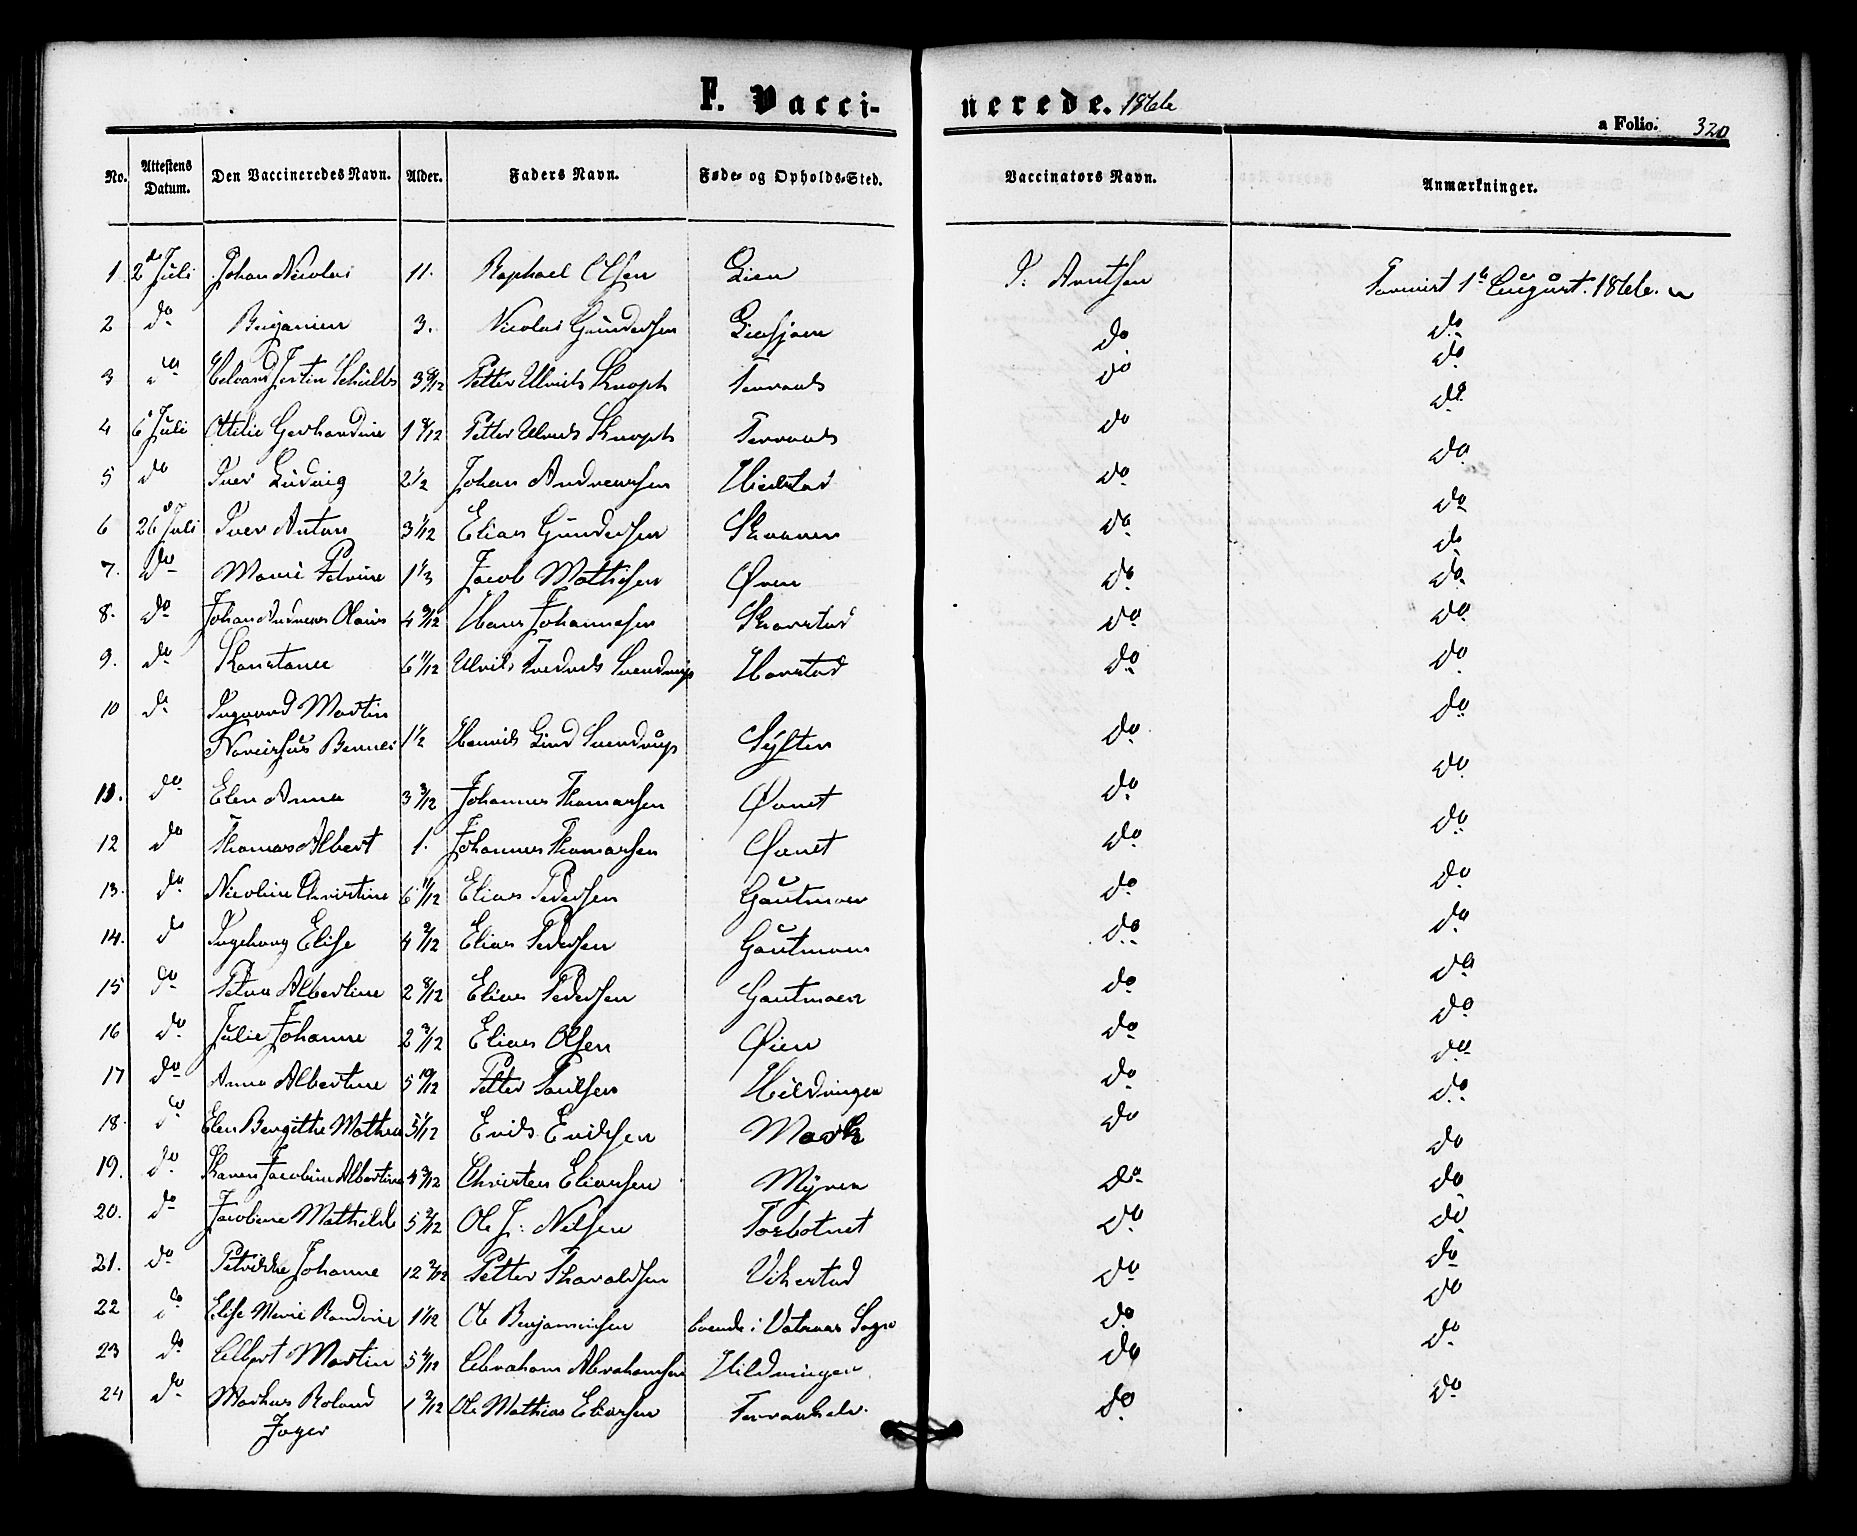 F. Vacci-
nerede. 1866
a Folio. 320
No. Attestens Datum. Den Vaccineredes Navn. Alder. Faders Navn. Føde- og Opholds-Sted. Vaccinators Navn. Anmærkninger.
1. 2d Juli Johan Nicolai 11. Raphael Olsen Lien Arntsen 1ste August. 1866.
2 do Benjamin 3. Nicolai Gundersen do do
3 do 3 8/12 Petter Ulrich Knoph Terraak do do
4 6 Juli Otilie Gerhardine 1 Petter Ulrich Knoph Terraak do do
5 do Iver Ludvig 2 1/2 Johan Andreassen do do
6 26 Juli Iver Anton 3 1/12 Elias Gundersen do do
7. do Marie Petrine 1 1/3 Jacob Mathisen Øren do do
8. do Johan Andreas Olaus 4 9/12 Hans Johannesen Skarstad do do
9. do Konstance 6 11/12 Ulrik Fredrik Svendrup Harstad do do
10 do Ingvard Martin
Bernes 1 1/2 Henrik Lind Svendrup Sylten do do
11. do Elen Anna 3 3/12 Johannes Thomassen do do
12 do Thomas Albert 1. Johannes Thomassen do do
13. do Nicoline Christine 6 11/12 Elias Pedersen Gautmoen do do
14. do Ingeborg Elise 4 2/12 Elias Pedersen Gautmoen do do
15 do Petra Albertine 2 8/12 Elias Pedersen Gautmoen do do
16 do Julie Johanne 2 3/12 Elias Olsen Øien do do
17 do Anna Albertine 5 10/12 Petter Paulsen Hildringen do do
18. do Elen Bergithe Mathea 5 1/12 Erik Eriksen Mark do do
19. do Karen Jacobine Albertine 4 3/12 Christen Eliassen Myren do do
20. do Jacobine Mathilde 5 2/12 Ole J: Nilsen Torbotnet do do
21. do Petrikke Johanne 12 2/12 Petter Tharaldsen Vikestad do do
22 do Elise Marie Randine 1 1/12 Ole Benjaminsen boende i Vatnaas Sogn do do
23 do Albert Martin 5 Abraham Abrahamsen Hildringen do do
24 do Markus Roland 1 2/12 Ole Mathias Eliassen do do
Jager